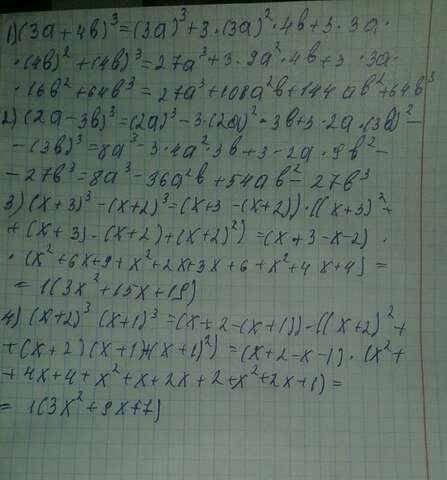 1) (3a+4b)³=(3a)³+3·(3a)²·4b+3·3a·
·(4b)²+(4b)³=27a³+3·9a²·4b+3·3a·
·16b²+64b³=27a³+108a²b+144ab²+64b³
2) (2a-3b)³=(2a)³-3·(2a)²·3b+3·2a·(3b)²-
-(3b)³=8a³-3·4a²·3b+3-2a·9b²-
-27b³=8a³-36a²b+54ab²-27b³
3) (x+3)³-(x+2)³=(x+3-(x+2))·((x+3)²+
+(x+3)-(x+2)+(x+2)²)=(x+3-x-2)·
·(x²+6x+9+x²+2x+3x+6+x²+4x+4)=
=1(3x²+15x+19)
4) (x+2)³(x+1)³=(x+2-(x+1))-((x+2)²+
+(x+2)(x+1)+(x+1)²)=(x+2-x-1)·(x²+
+4x+4+x²+x+2x+2+x²+2x+1)=
=1(3x²+9x+7)